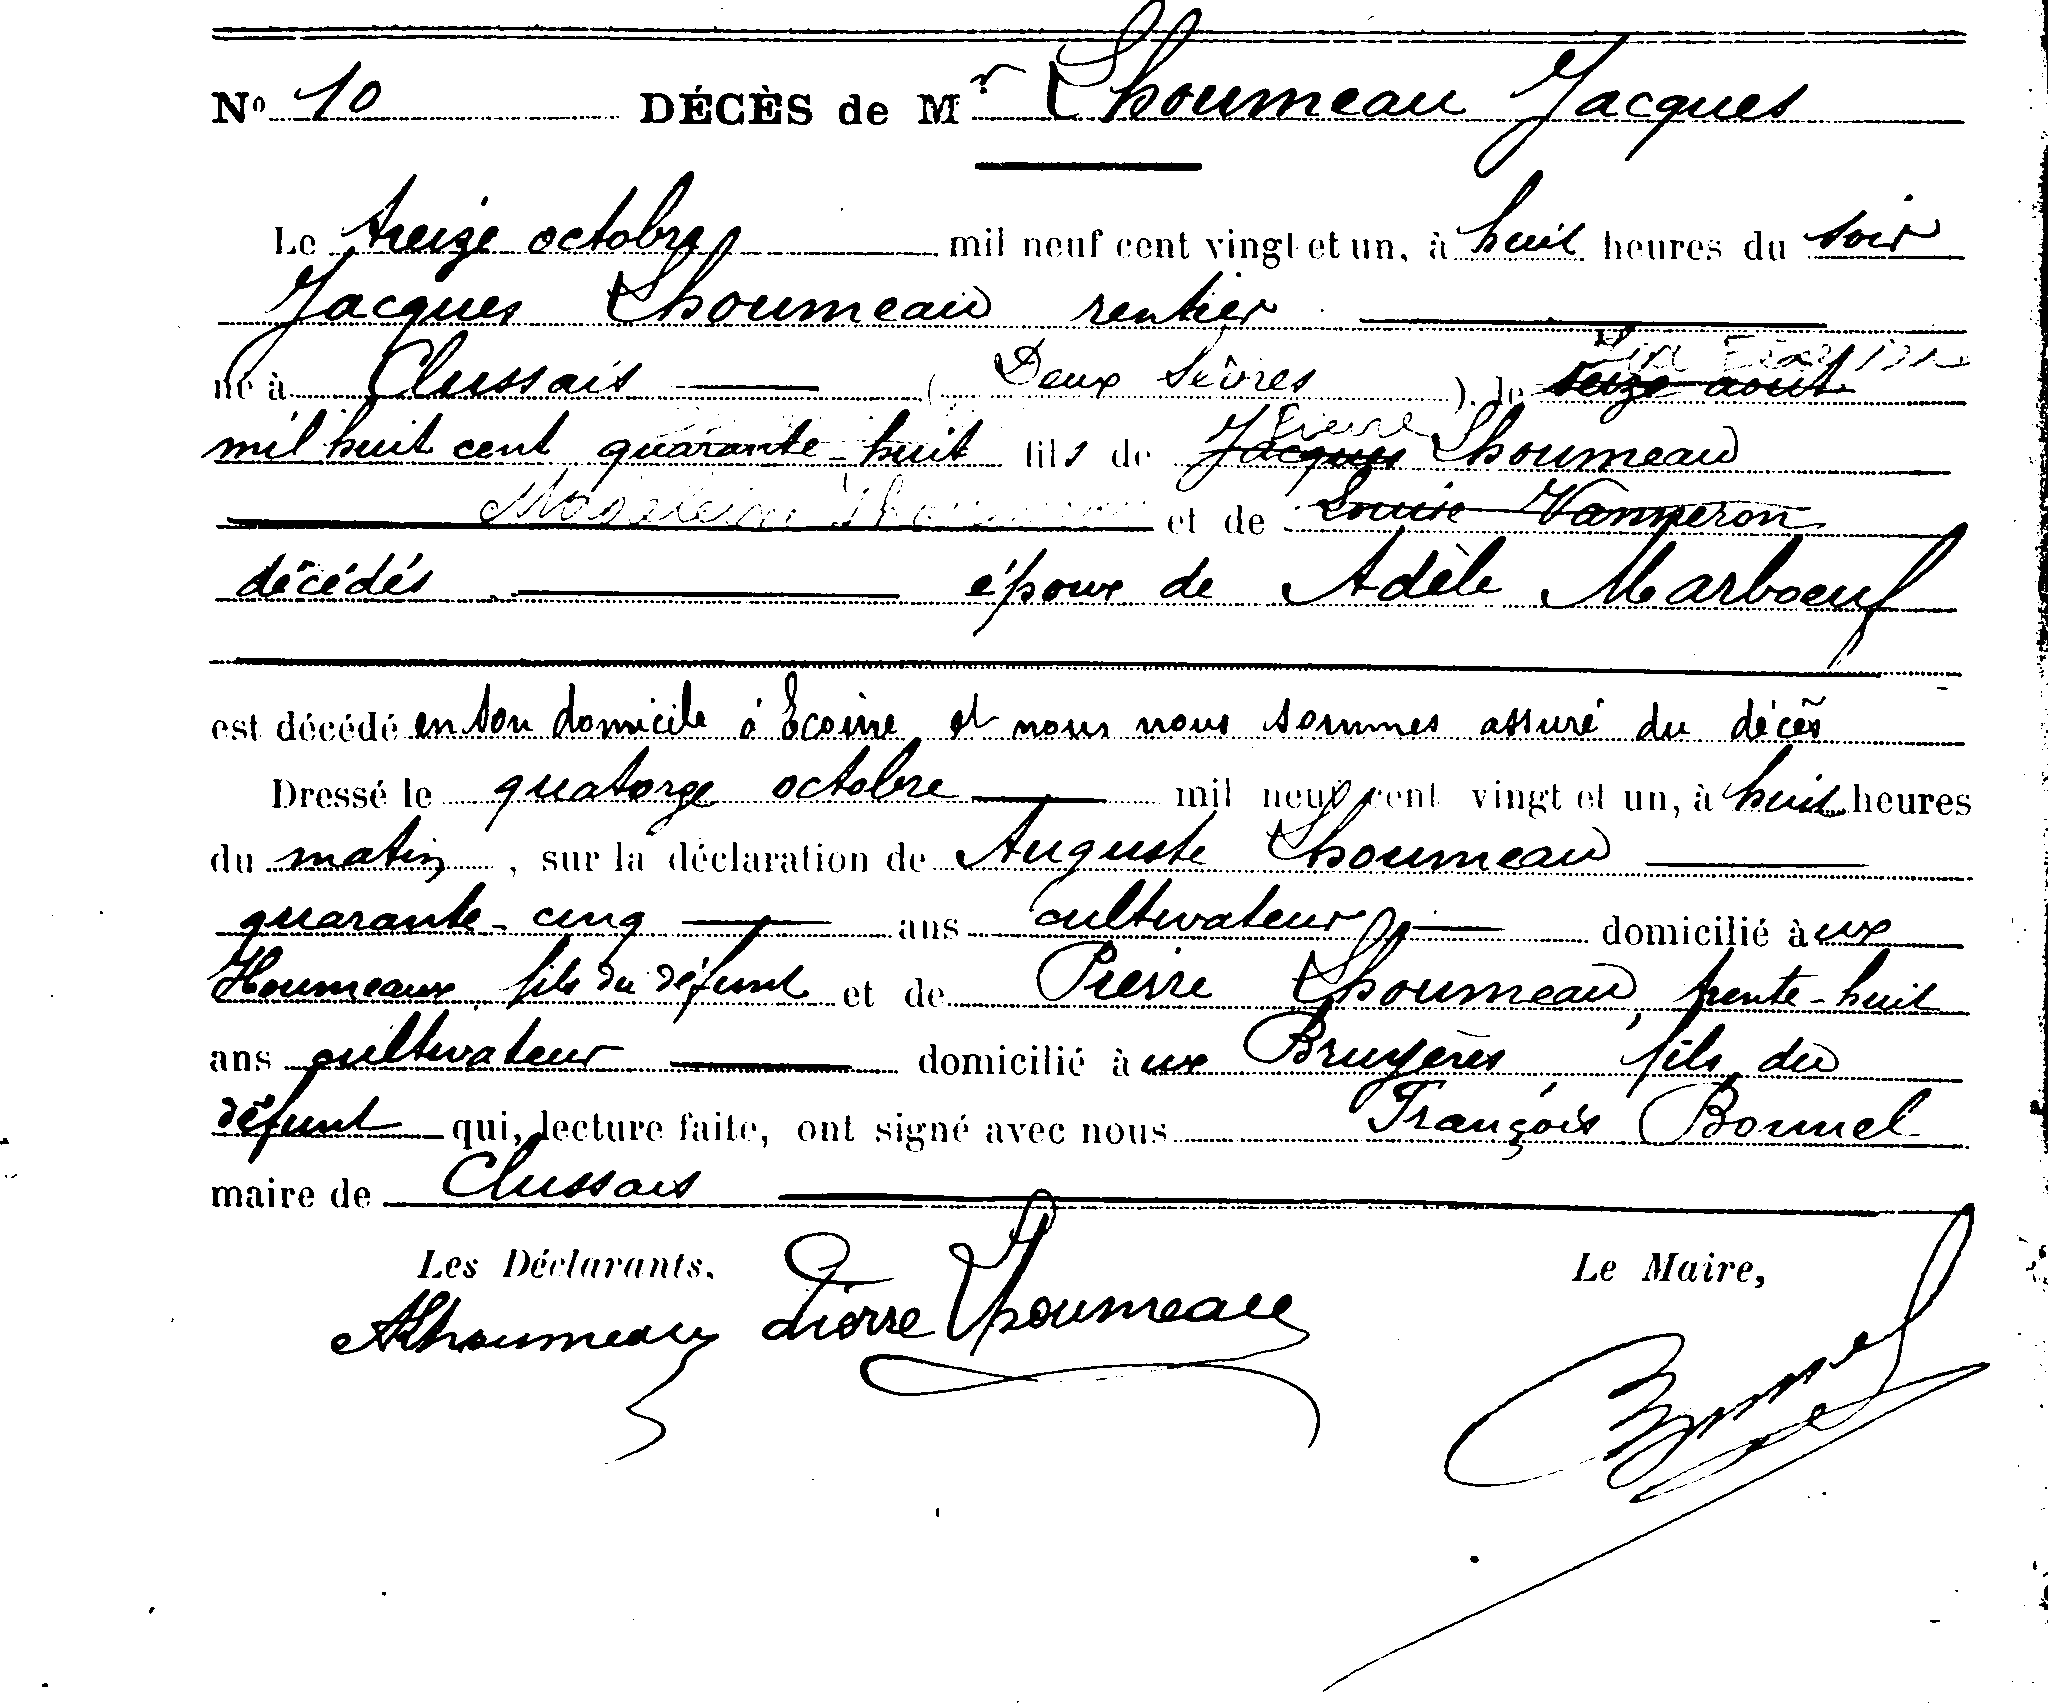 No 10 DÉCÈS de Mr Lhoumeau Jacques
Le treize octobre mil neuf cent vingt et un, à huit heures du soir
Jacques Lhoumeau rentier
né à Clussais ( Deux Sèvres ), le seize août
Pierre
mil huit cent quarante-huit fils de Jacques Lhoumeau
et de Louise Vanneron
décédés époux de Adèle Marboeuf
est décédé en son domicile à Ecoine et nous nous sommes assuré du décès
Dressé le quatorze octobre mil neuf cent vingt et un, à huit heures
du matin, sur la déclaration de Auguste Lhoumeau
quarante-cinq ans cultivateur domicilié à ux
Houmeaux fils du défunt et de Pierre Lhoumeau, trente-huit
ans cultivateur domicilié à ux Bruyères, fils du
défunt qui, lecture faite, ont signé avec nous François Bonnel
maire de Clussais
Les Déclarants, Le Maire,
ALhoumeau Pierre Lhoumeau
Bonnel